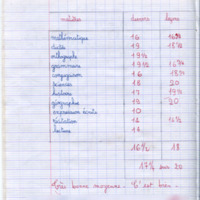 matières devoirs leçons
mathématique 16
dictée 19 18½
orthographe 19½
grammaire 19½ 16¾
conjugaison 16 18¾
sciences 18 20
histoire 17 19½
géographie 15 20
expression écrite 10
récitation 14 16½
lecture 14
16¼ 18
17¼ sur 20
Très bonne moyenne. C'est bien.